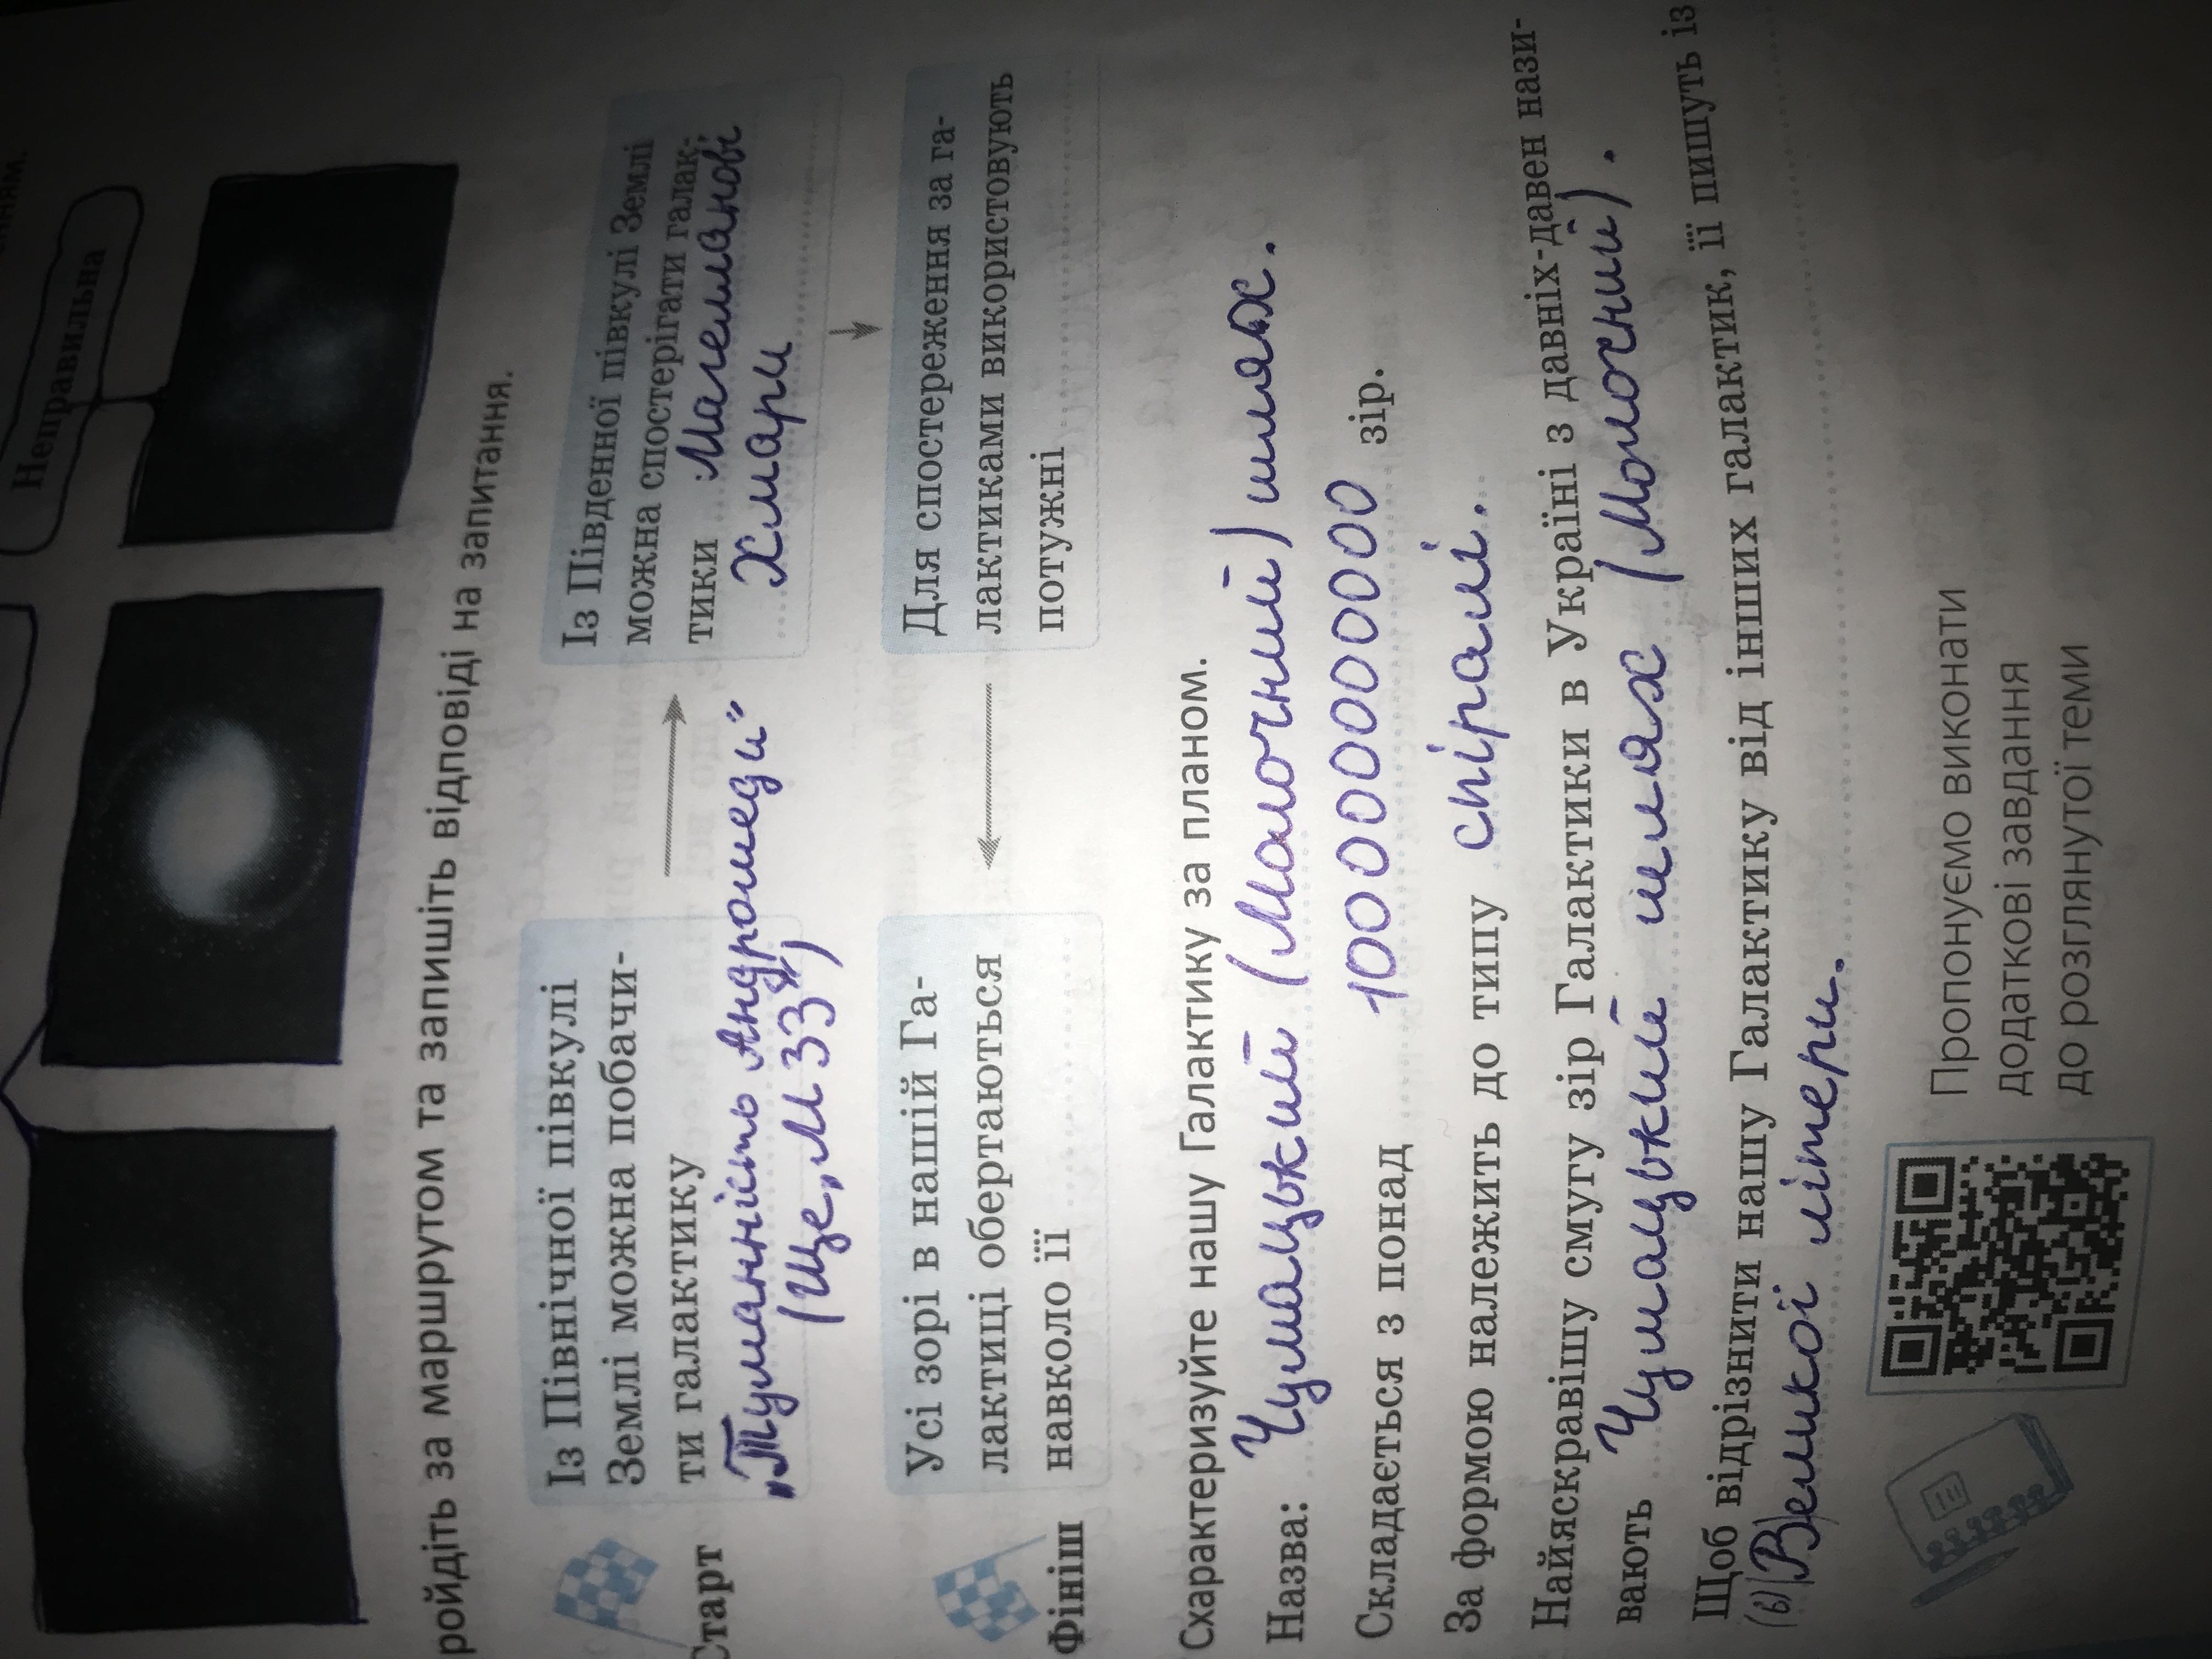 Неправильна
ройдіть за маршрутом та запишіть відповіді на запитання.
Старт
Із Північної півкулі
Землі можна побачи-
ти галактику
„Туманність Андромеди"
(Ще, М 33")
Із Південної півкулі Землі
можна спостерігати галак-
тики Магеланові
Хмари
Для спостереження за га-
лактиками використовують
потужні
Усі зорі в нашій Га-
лактиці обертаються
навколо її
Фініш
Схарактеризуйте нашу Галактику за планом.
Назва: Чумацький (Молочний) шлях.
Складається з понад 100000000000 зір.
За формою належить до типу спіралі.
Найяскравішу смугу зір Галактики в Україні з давніх-давен нази-
вають Чумацький шлях (Молочний).
Щоб відрізнити нашу Галактику від інших галактик, її пишуть із
(в) Великої літери.
Пропонуємо виконати
додаткові завдання
до розглянутої теми